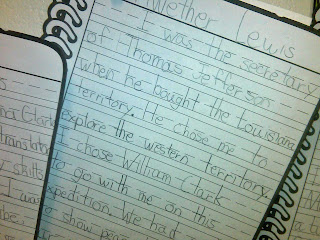 wether Lewis
I was the secretary
of Thomas Jefferson
when he bought the Louisiana
territory. He chose me to
explore the western territory.
I chose William Clark
to go with me on this
expedition. We had
to show
Clark
skills
I was